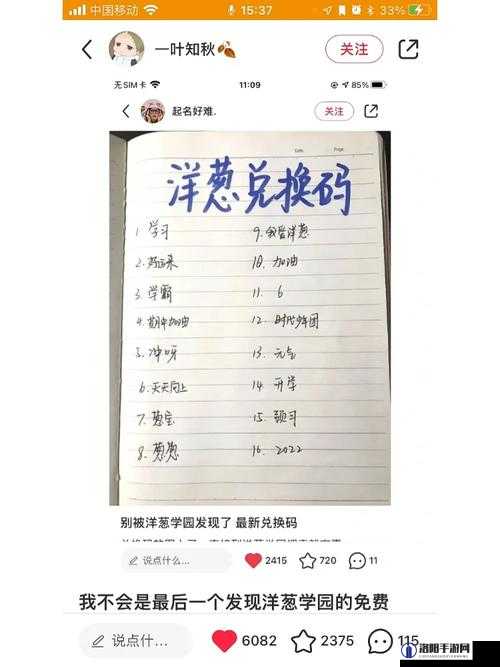 中国移动 15:37 33%
一叶知秋 关注
无SIM卡 11:09 85%
起名好难. 关注
Date. Page.
洋葱兑换码
1 学习
2. 好运来
3. 学霸
4. 期中加油
5. 冲呀
6. 天天向上
7. 葱宝
8. 葱葱
9. 我爱洋葱
10. 加油
11. 6
12. 时代少年团
13. 元气
14 开学
15. 预习
16. 2022
别被洋葱学园发现了 最新兑换码
说点什么... 2415 720 11
我不会是最后一个发现洋葱学园的免费
说点什么... 6082 2375 115
洛阳手游网